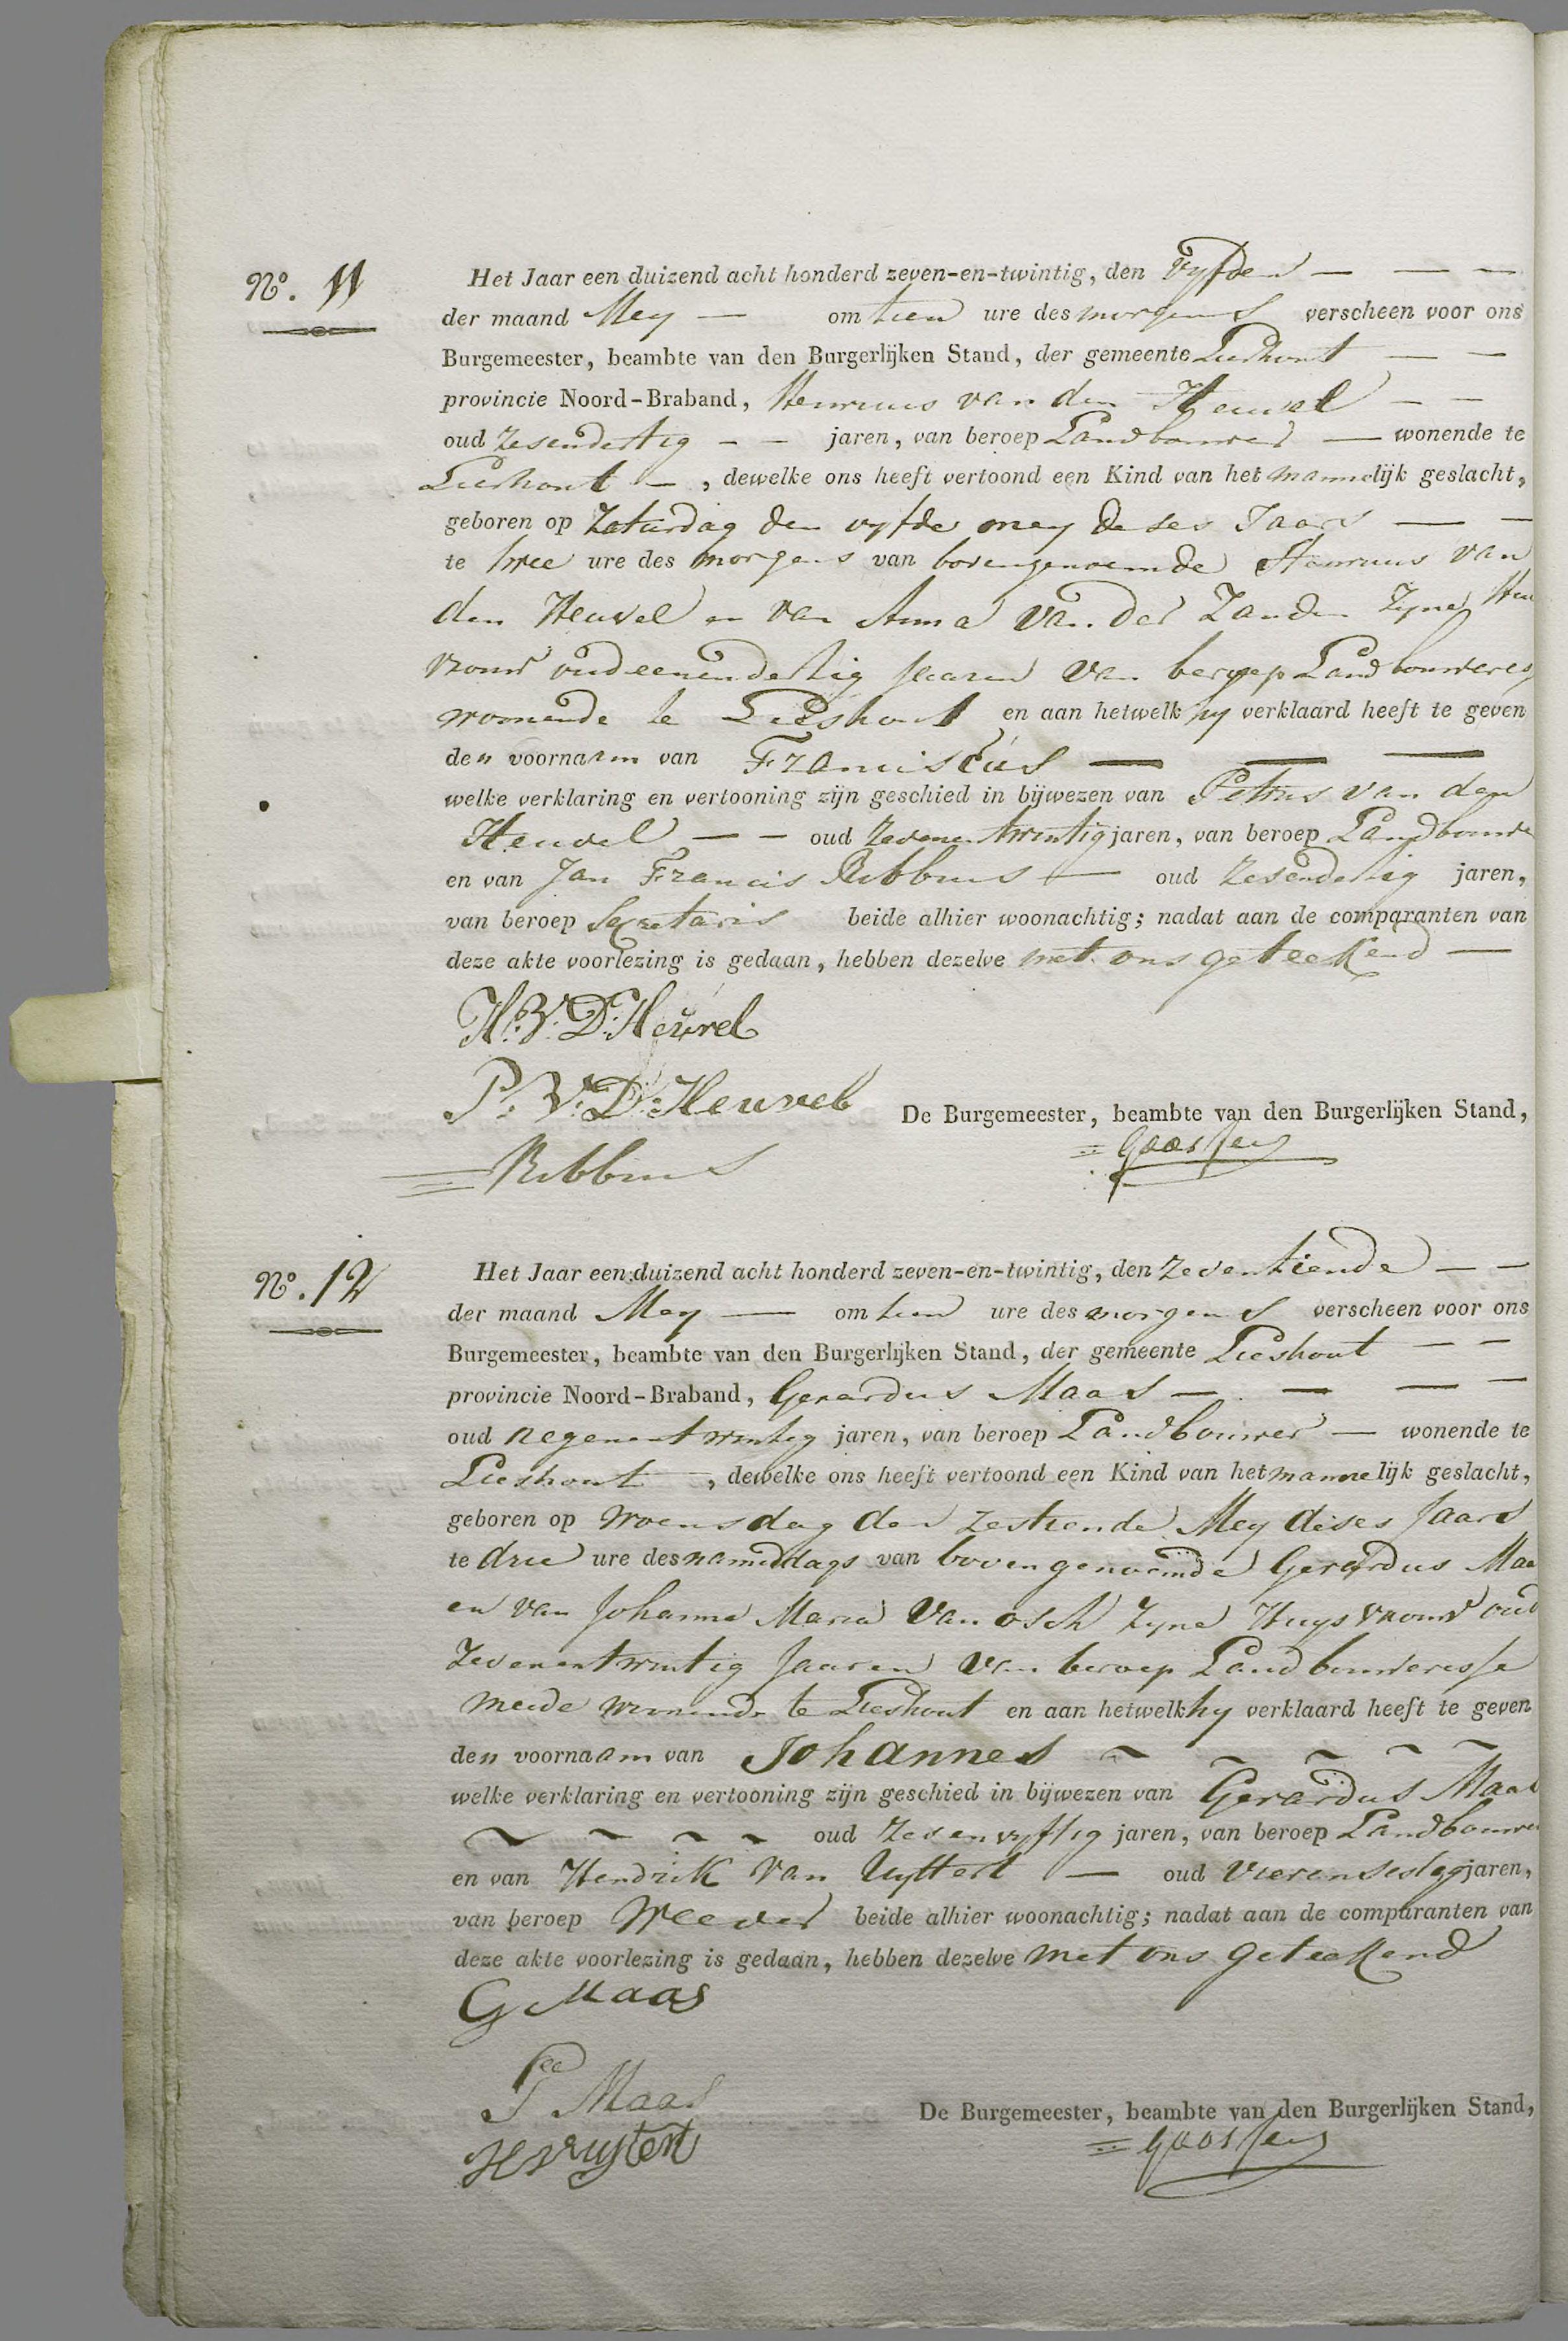 No. 11
Het Jaar een duizend acht honderd zeven-en-twintig, den Vyfden
der maand Mey om tien ure des morgens verscheen voor ons
Burgemeester, beambte van den Burgerlijken Stand, der gemeente Lieshout
provincie Noord-Braband, Henricus van den Heuvel
oud Zesendertig jaren, van beroep Landbouwer wonende te
Lieshout, dewelke ons heeft vertoond een Kind van het mannelijk geslacht,
geboren op Zaturdag den vyfde mey deses Jaars
te twee ure des morgens van bovengenoemde Henricus van
den Heuvel en van Anna van der Zanden Zyne Huis
vrouw oud eenendertig Jaaren van beroep Landbouweres
woonende te Lieshout en aan hetwelk hy verklaard heeft te geven
den voornaam van Franciscus
welke verklaring en vertooning zijn geschied in bijwezen van Petrus van den
Heuvel oud Zevenentwintig jaren, van beroep Landbouwe
en van Jan Francis Ribbius oud Zesendertig jaren,
van beroep Secretaris beide alhier woonachtig; nadat aan de comparanten van
deze akte voorlezing is gedaan, hebben dezelve met ons geteekend
H: V: D: Heuvel
P: V: D: Heuvel
De Burgemeester, beambte van den Burgerlijken Stand,
Goossens
Ribbius
No. 12
Het Jaar een duizend acht honderd zeven-en-twintig, den Zeventiende
der maand Mey om tien ure des morgens verscheen voor ons
Burgemeester, beambte van den Burgerlijken Stand, der gemeente Lieshout
provincie Noord-Braband, Gerardus Maas
oud negenentwintig jaren, van beroep Landbouwer wonende te
Lieshout, dewelke ons heeft vertoond een Kind van het mannelijk geslacht,
geboren op Woensdag den zestiende Mey deses Jaars
te drie ure des namiddags van bovengenoemde Gerardus Maa
en van Johanna Maria van osch Zyne Huysvrouw oud
Zevenentwintig Jaaren van beroep Landbouweresse
meede wonende te Lieshout en aan hetwelk hy verklaard heeft te geven
den voornaam van Johannes
welke verklaring en vertooning zijn geschied in bijwezen van Gerardus Maas
oud Zesenvyftig jaren, van beroep Landbouwe
en van Hendrik van Uyttert oud Vierensestig jaren,
van beroep Weever beide alhier woonachtig; nadat aan de comparanten van
deze akte voorlezing is gedaan, hebben dezelve met ons geteekend
G Maas
G Maas
De Burgemeester, beambte van den Burgerlijken Stand,
Goossens
H V uytert